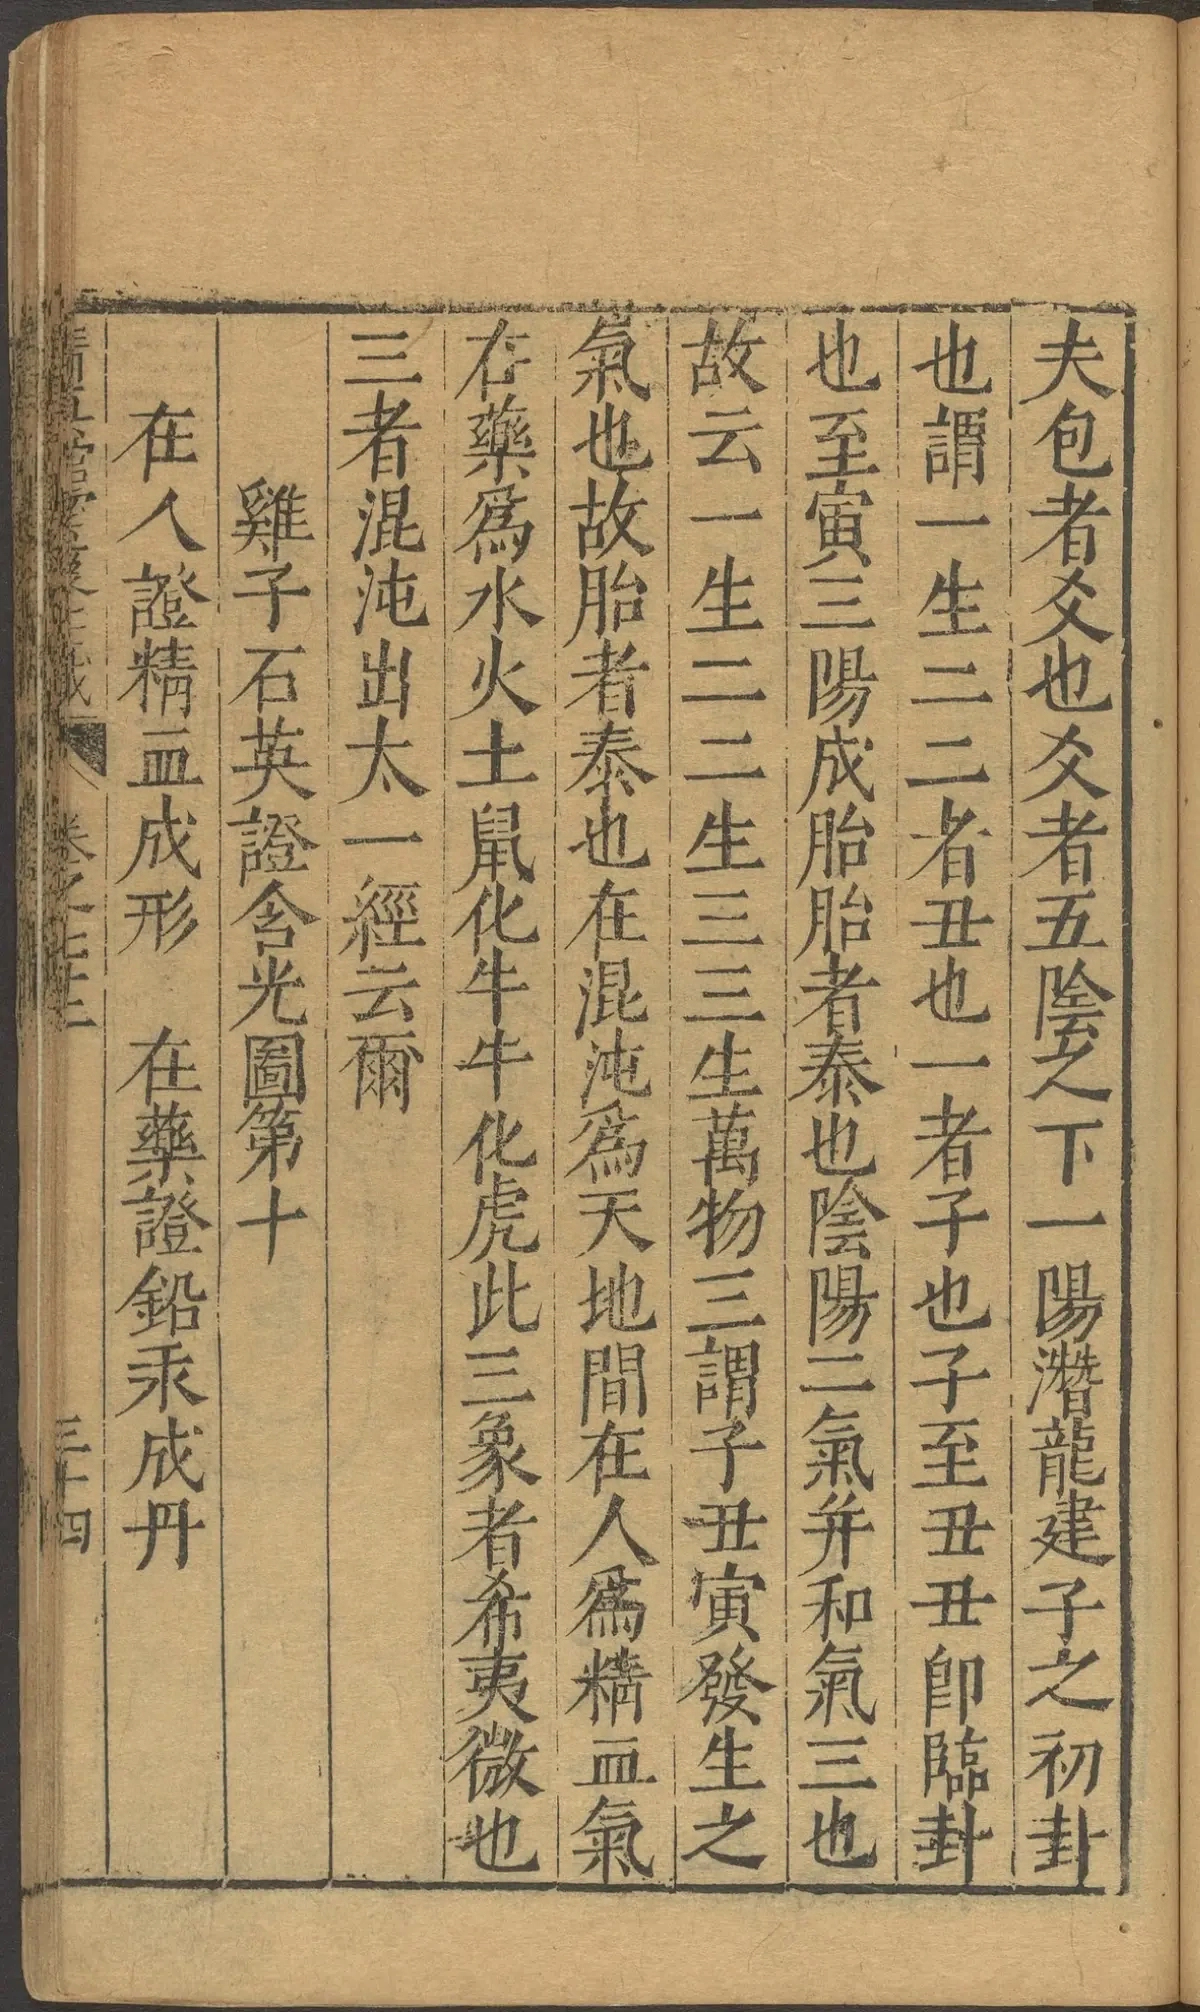 夫包者爻也爻者五陰之下一陽潛龍建子之初卦
也謂一生二二者丑也一者子也子至丑丑即臨卦
也至寅三陽成胎胎者泰也陰陽二氣并和氣三也
故云一生二二生三三生萬物三謂子丑寅發生之
氣也故胎者泰也在混沌爲天地間在人爲精血氣
在藥爲水火土鼠化牛牛化虎此三象者希夷微也
三者混沌出太一經云爾
雞子石英證含光圖第十
在人證精血成形 在藥證鉛汞成丹
卷之七十二
三十四